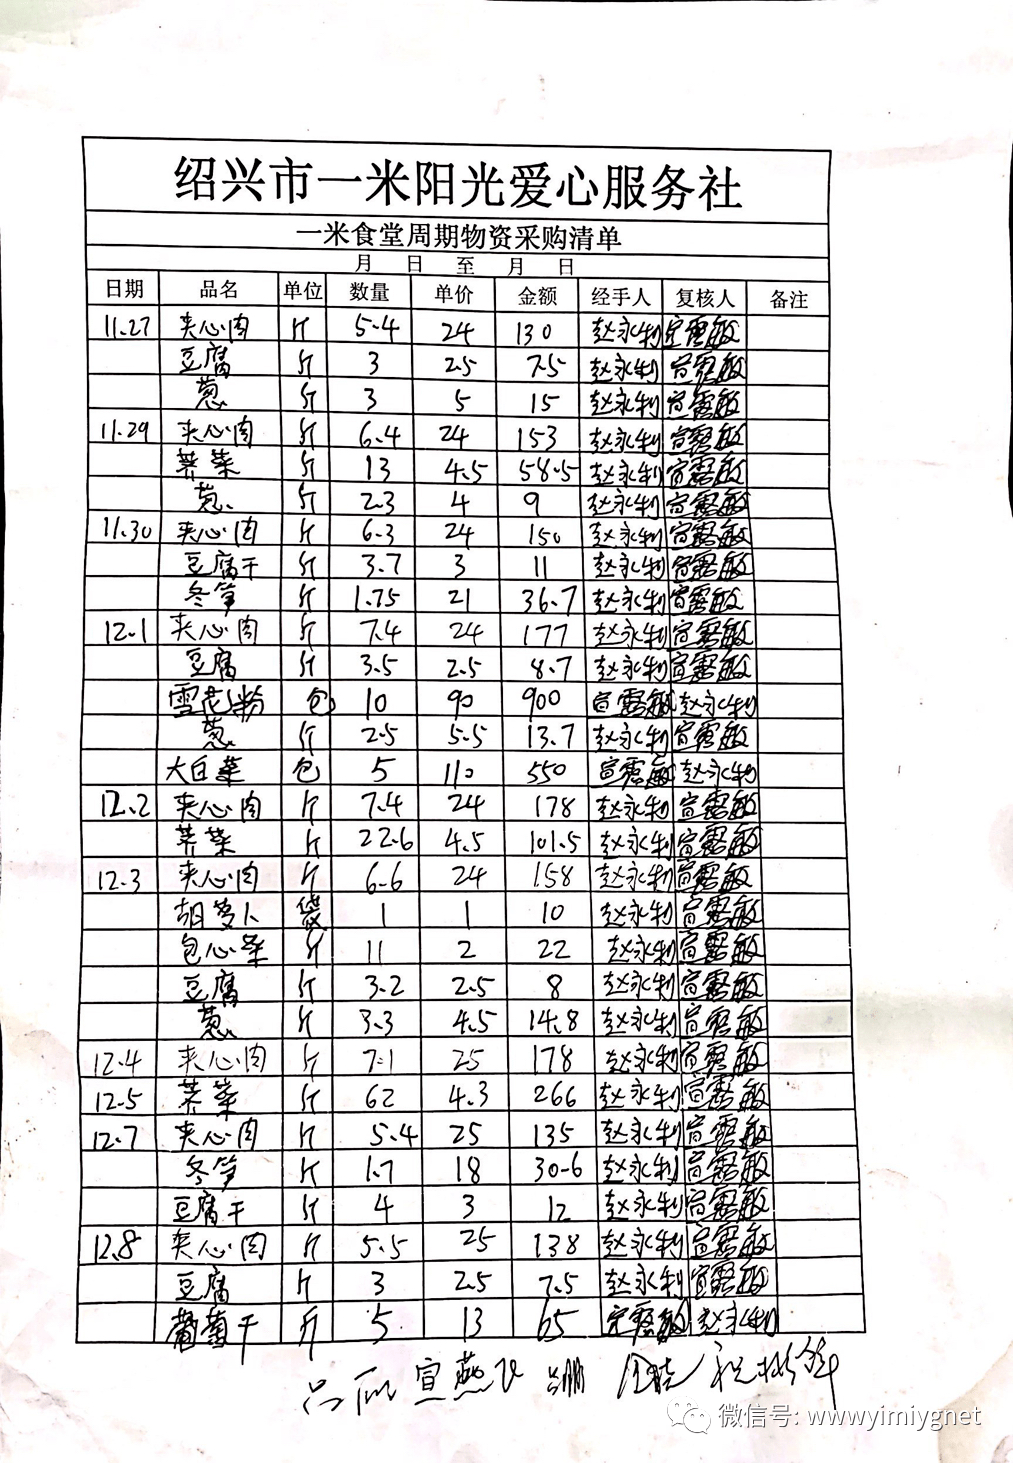 绍兴市一米阳光爱心服务社
一米食堂周期物资采购清单
月 日 至 月 日
日期 品名 单位 数量 单价 金额 经手人 复核人 备注
11.27 夹心肉 斤 5.4 24 130 赵永利 宣露敏
豆腐 斤 3 2.5 7.5 赵永利 宣露敏
葱 斤 3 5 15 赵永利 宣露敏
11.29 夹心肉 斤 6.4 24 153 赵永利 宣露敏
荠菜 斤 13 4.5 58.5 赵永利 宣露敏
葱 斤 2.3 4 9 赵永利 宣露敏
11.30 夹心肉 斤 6.3 24 150 赵永利 宣露敏
豆腐干 斤 3.7 3 11 赵永利 宣露敏
冬笋 斤 1.75 21 36.7 赵永利 宣露敏
12.1 夹心肉 斤 7.4 24 177 赵永利 宣露敏
豆腐 斤 3.5 2.5 8.7 赵永利 宣露敏
雪花粉 包 10 90 900 宣露敏 赵永利
葱 斤 2.5 5.5 13.7 赵永利 宣露敏
大白菜 包 5 110 550 宣露敏 赵永利
12.2 夹心肉 斤 7.4 24 178 赵永利 宣露敏
荠菜 斤 22.6 4.5 101.5 赵永利 宣露敏
12.3 夹心肉 斤 6.6 24 158 赵永利 宣露敏
胡萝卜 袋 1 1 10 赵永利 宣露敏
包心菜 斤 11 2 22 赵永利 宣露敏
豆腐 斤 3.2 2.5 8 赵永利 宣露敏
葱 斤 3.3 4.5 14.8 赵永利 宣露敏
12.4 夹心肉 斤 7.1 25 178 赵永利 宣露敏
12.5 荠菜 斤 62 4.3 266 赵永利 宣露敏
12.7 夹心肉 斤 5.4 25 135 赵永利 宣露敏
冬笋 斤 1.7 18 30.6 赵永利 宣露敏
豆腐干 斤 4 3 12 赵永利 宣露敏
12.8 夹心肉 斤 5.5 25 138 赵永利 宣露敏
豆腐 斤 3 2.5 7.5 赵永利 宣露敏
葡萄干 斤 5 13 65 宣露敏 赵永利
宣燕飞
微信号: wwwyimiygnet